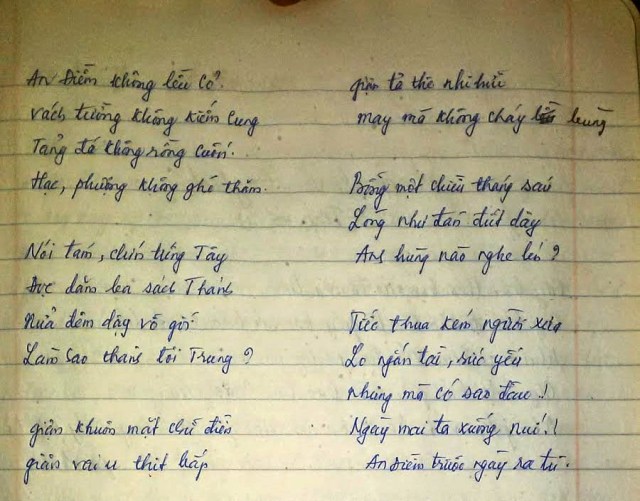 An Điềm không lều cỏ?
vách tường không kiếm cung
Tảng đá không rồng cuốn.
Hạc, phượng không ghé thăm.
Nói tám, chín tiếng Tây
Đọc dăm ba sách Thánh
Nửa đêm dậy vỗ gối
Làm sao thành tôi Trung?
giận khuôn mặt chữ điền
giận vai u thịt bắp
giận ta thế nhi
may mà không cháy bùng
Bỗng một chiều tháng sáu
Lòng như đàn đứt dây
Anh hùng nào nghe lén?
Tiếc thua kém người xưa
Lo ngắn tài, sức yếu
nhưng mà có sao đâu!
Ngày mai ta xuống núi!
An Điềm trước ngày ra tù.